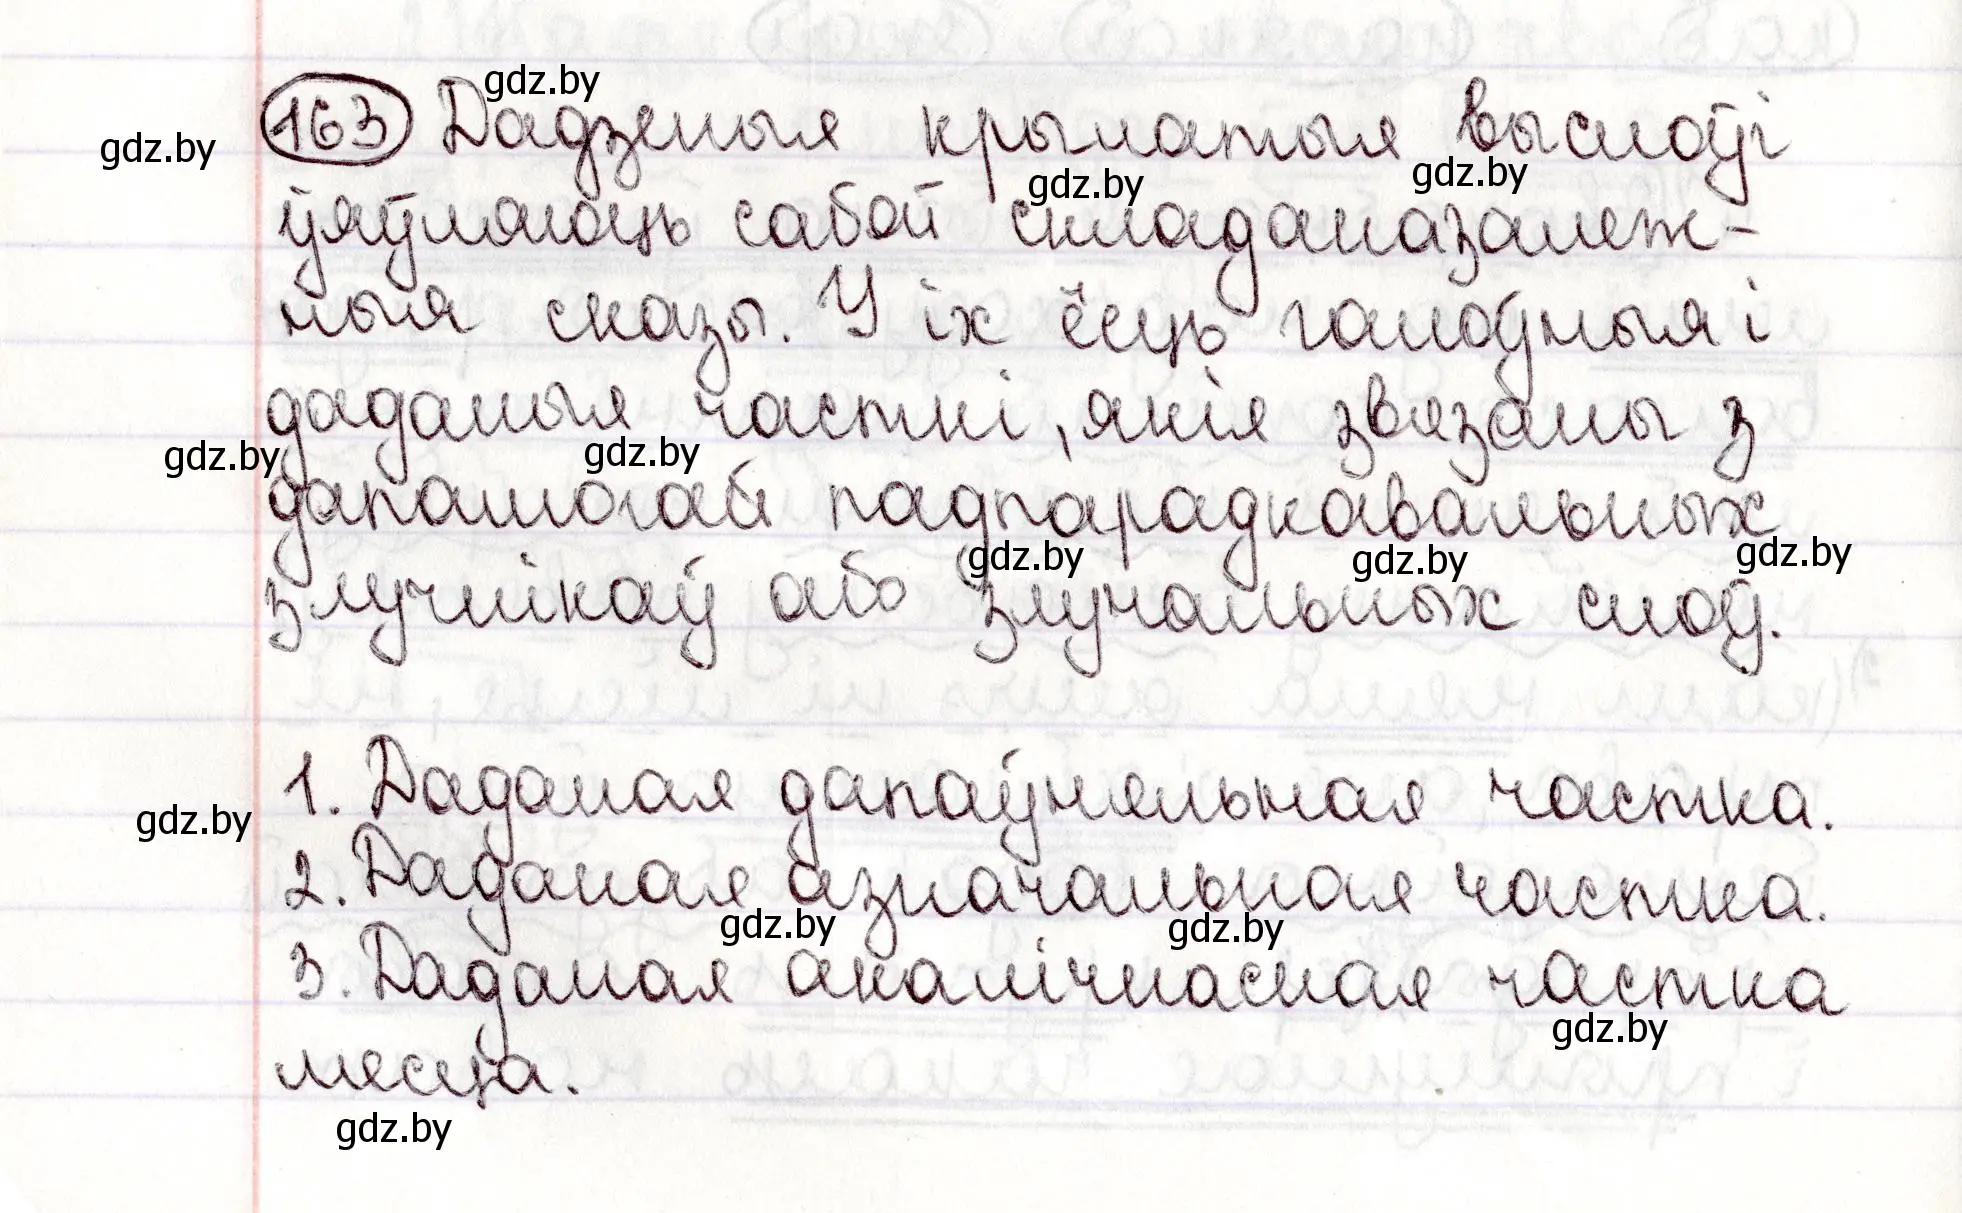 163 Дадзеныя крылатыя выслоўі
ўяўляюць сабой складаназалеж-
ныя сказы. У іх ёсць галоўныя і
даданыя часткі, якія звязаны з
дапамогай падпарадкавальных
злучнікаў або злучальных слоў.
1. Даданая дапаўняльная частка.
2. Даданая азначальная частка.
3. Даданая акалічнасная частка
месца.
gdz.by
gdz.by
gdz.by
gdz.by
gdz.by
gdz.by
gdz.by
gdz.by
gdz.by
gdz.by
gdz.by
gdz.by
gdz.by
gdz.by